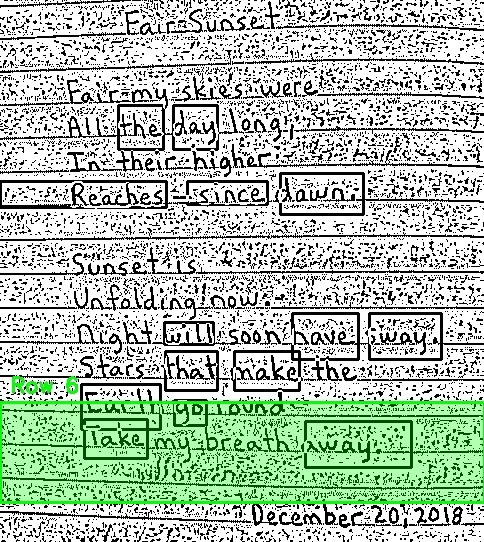 Fair Sunset
Fair my skies were
All the day long,
In their higher
Reaches - since dawn.
Sunset is
Unfolding now.
Night will soon have sway.
Stars that make the
Row 6
Earth go round
Take my breath away.
December 20, 2018